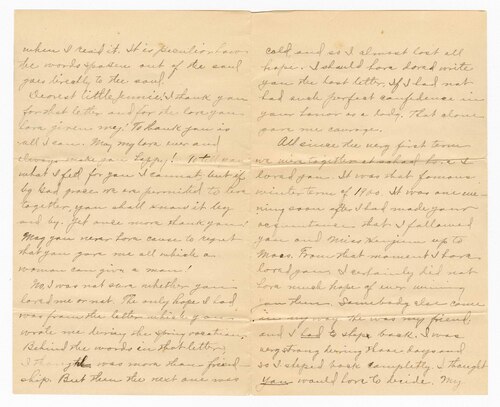 when I read it. It is peculiar how
the words spoken out of the soul
goes directly to the soul.
Dearest little Jennie! I thank you
for that letter and for the love you
have given me. To thank you is
all I can. May my love ever and
always make you happy!
what I feel for you I cannot, but if
by God grace we are permitted to live
together, you shall know it by
and by. Yet once more thank you!
May you never have cause to regret
that you gave me all which a
woman can give a man!
No, I was not sure whether you
loved me or not. The only hope I had
was from the letter which you
wrote me during the spring vacation.
Behind the words in that letter
I thought was more than friend-
ship. But then the next one was
cold and so I almost lost all
hope. I should have dared write
you the last letter, if I had not
had such perfect confidence in
your honor as a lady. That alone
gave me courage.
All since the very first term
we were together at school have I
loved you. It was that famous
winter term of 1900. It was one eve-
ning soon after I had made your
acquaintance that I followed
you and Miss up to
Mass. From that moment I have
loved you. I certainly did not
have much hope of ever winning
you then. Somebody else came
in my way. He was my friend,
and I had to step back. I was
very strong in those days and
so I steped back completly. I thought
You would have to decide. My